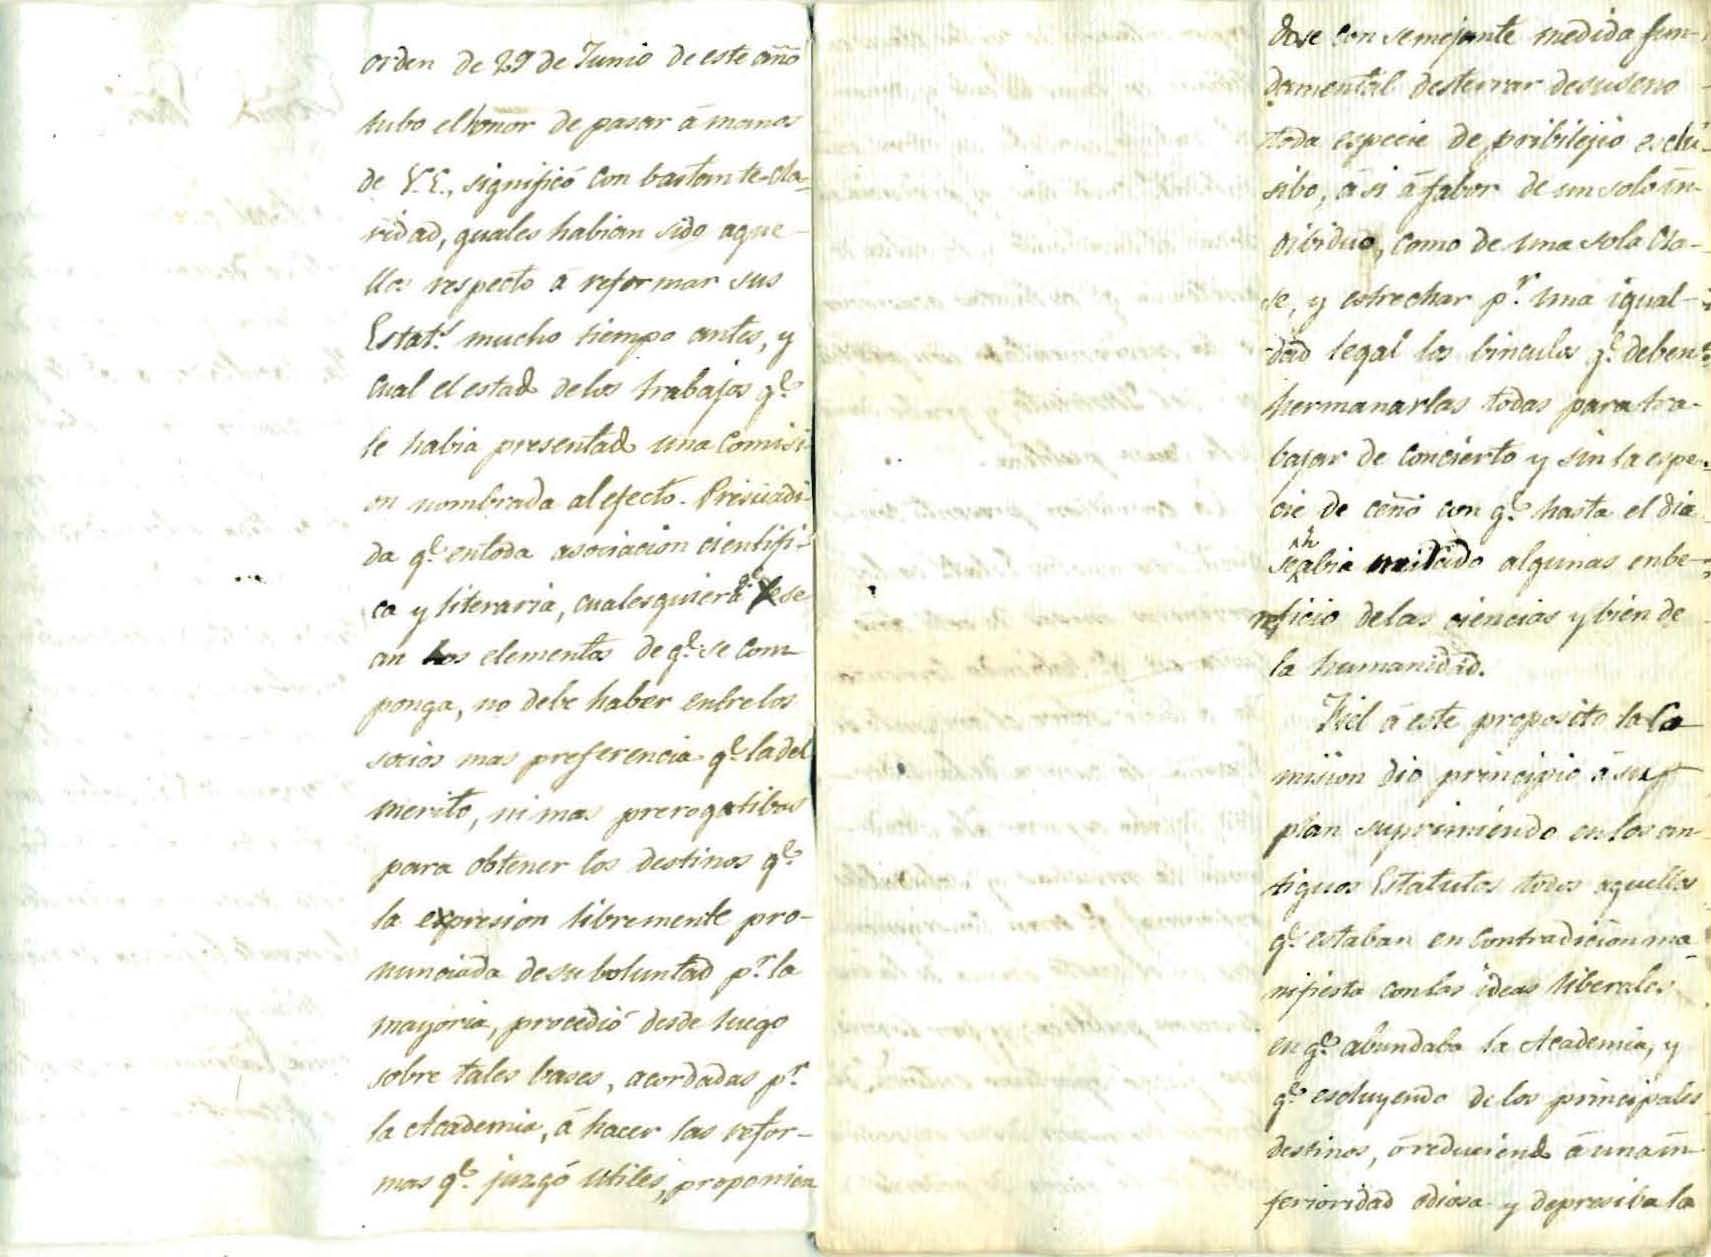 orden de 29 de Junio de este año
tubo el honor de pasar á manos
de V.E., significó con bastante cla-
ridad, quales habian sido aque-
llos respecto á reformar sus
Estat.s mucho tiempo antes, y
cual el estado de los trabajos q.e
le habia presentado una Comisi-
on nombrada al efecto. Presuadi-
da q.e en toda asociacion cientifi-
ca y literaria, cualesquiera q.e se
an los elementos de q.e se com-
ponga, no debe haber entre los
socios mas preferencia q.e la del
merito, ni mas prerogatibas
para obtener los destinos q.e
la expresion libremente pro-
nunciada de su boluntad p.r la
mayoria, procedió desde luego
sobre tales bases, acordadas p.r
la Academia, á hacer las refor-
mas q.e juzgó utiles, proponien
dose con semejante medida fun-
damental desterrar de su seno
toda especie de pribilejio esclu-
sibo, á si á fabor de un solo in-
dibiduo, como de una sola cla-
se, y estrechar p.r una igual-
dad legal los binculos q.e deben
hermanarlas todas para tra-
bajar de concierto y sin la espe-
cie de ceño con q.e hasta el dia
se habia mirado algunas en be-
neficio de las ciencias y bien de
la humanidad.
Fiel á este proposito la Co
mision dio principio á su
plan suprimiendo en los an-
tiguos Estatutos todos aquellos
q.e estaban en contradicion ma
nifiesta con las ideas liberales
en q.e abundaba la Academia, y
q.e escluyendo de los principales
destinos, ó reduciendo á una in
ferioridad odiosa y depresiba la